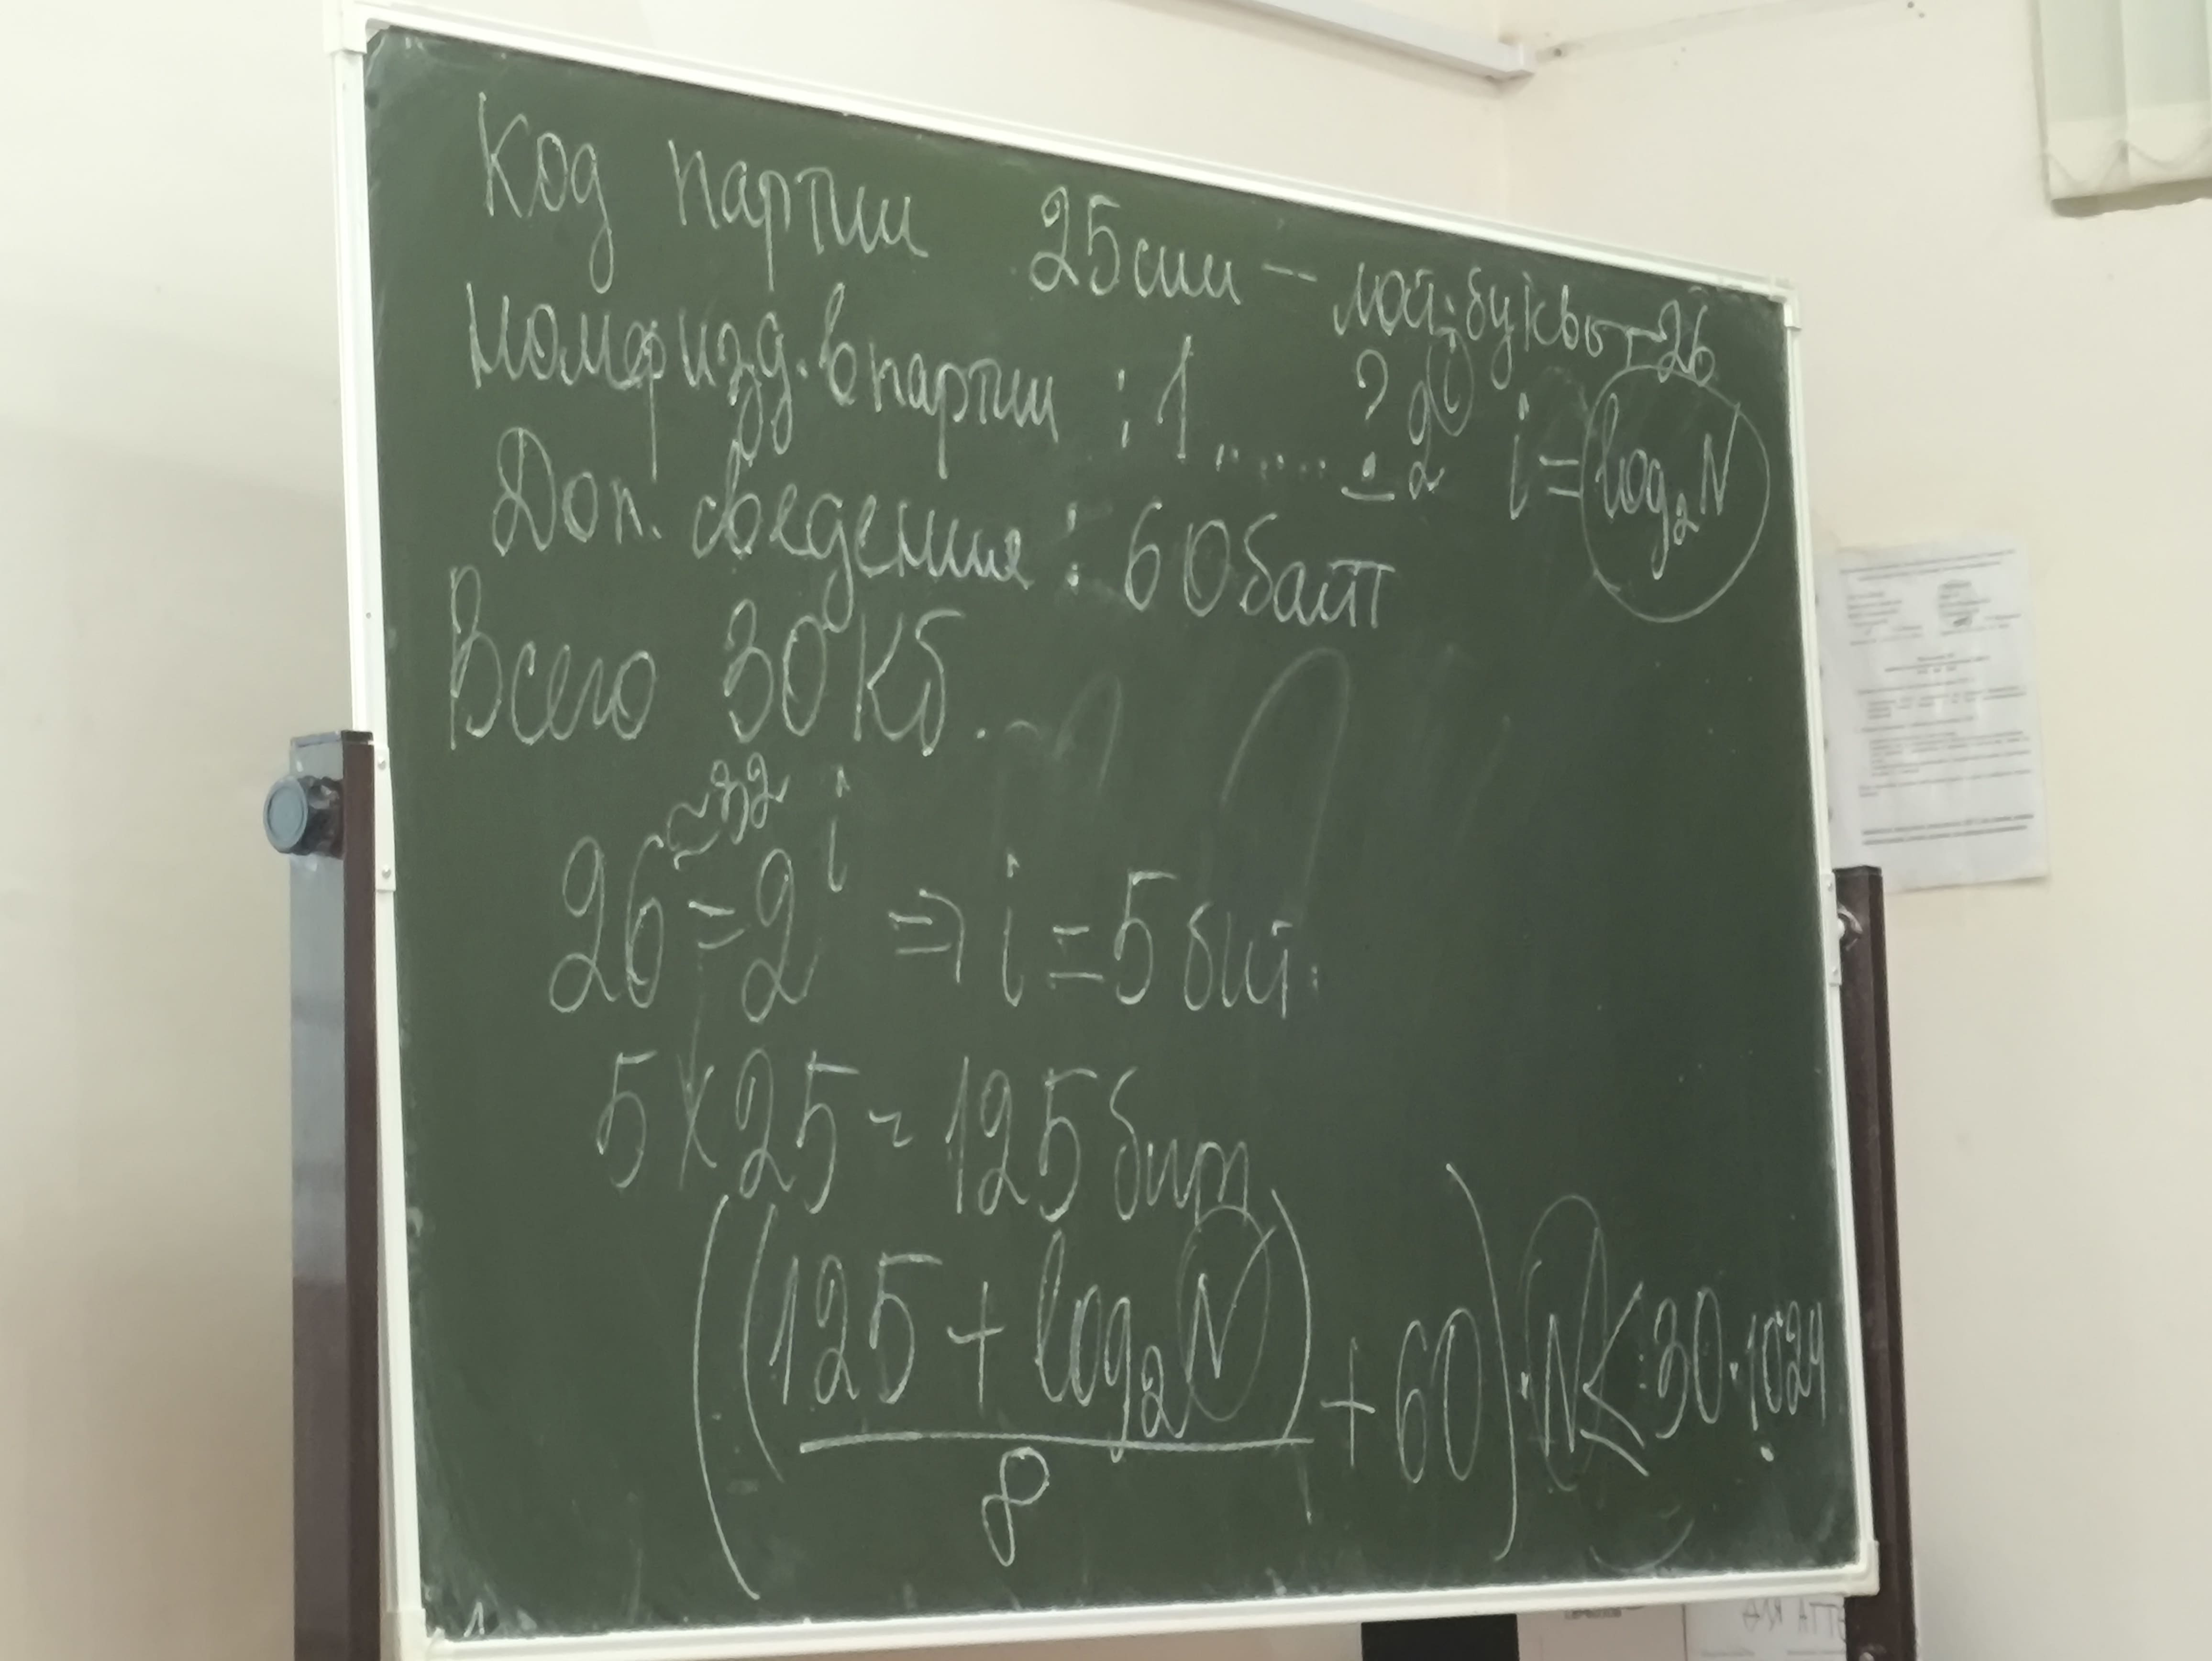 Код партии 25 сим — лат. буквы - 26
Ном. изд. в партии : 1 ..... ? 2^i i = log₂N
Доп. сведения : 60 байт
Всего 30 Кб.
~32
26 = 2^i ⇒ i = 5 бит.
5 × 25 = 125 бит
((125 + log₂N) / 8 + 60) · N ≤ 30 · 1024